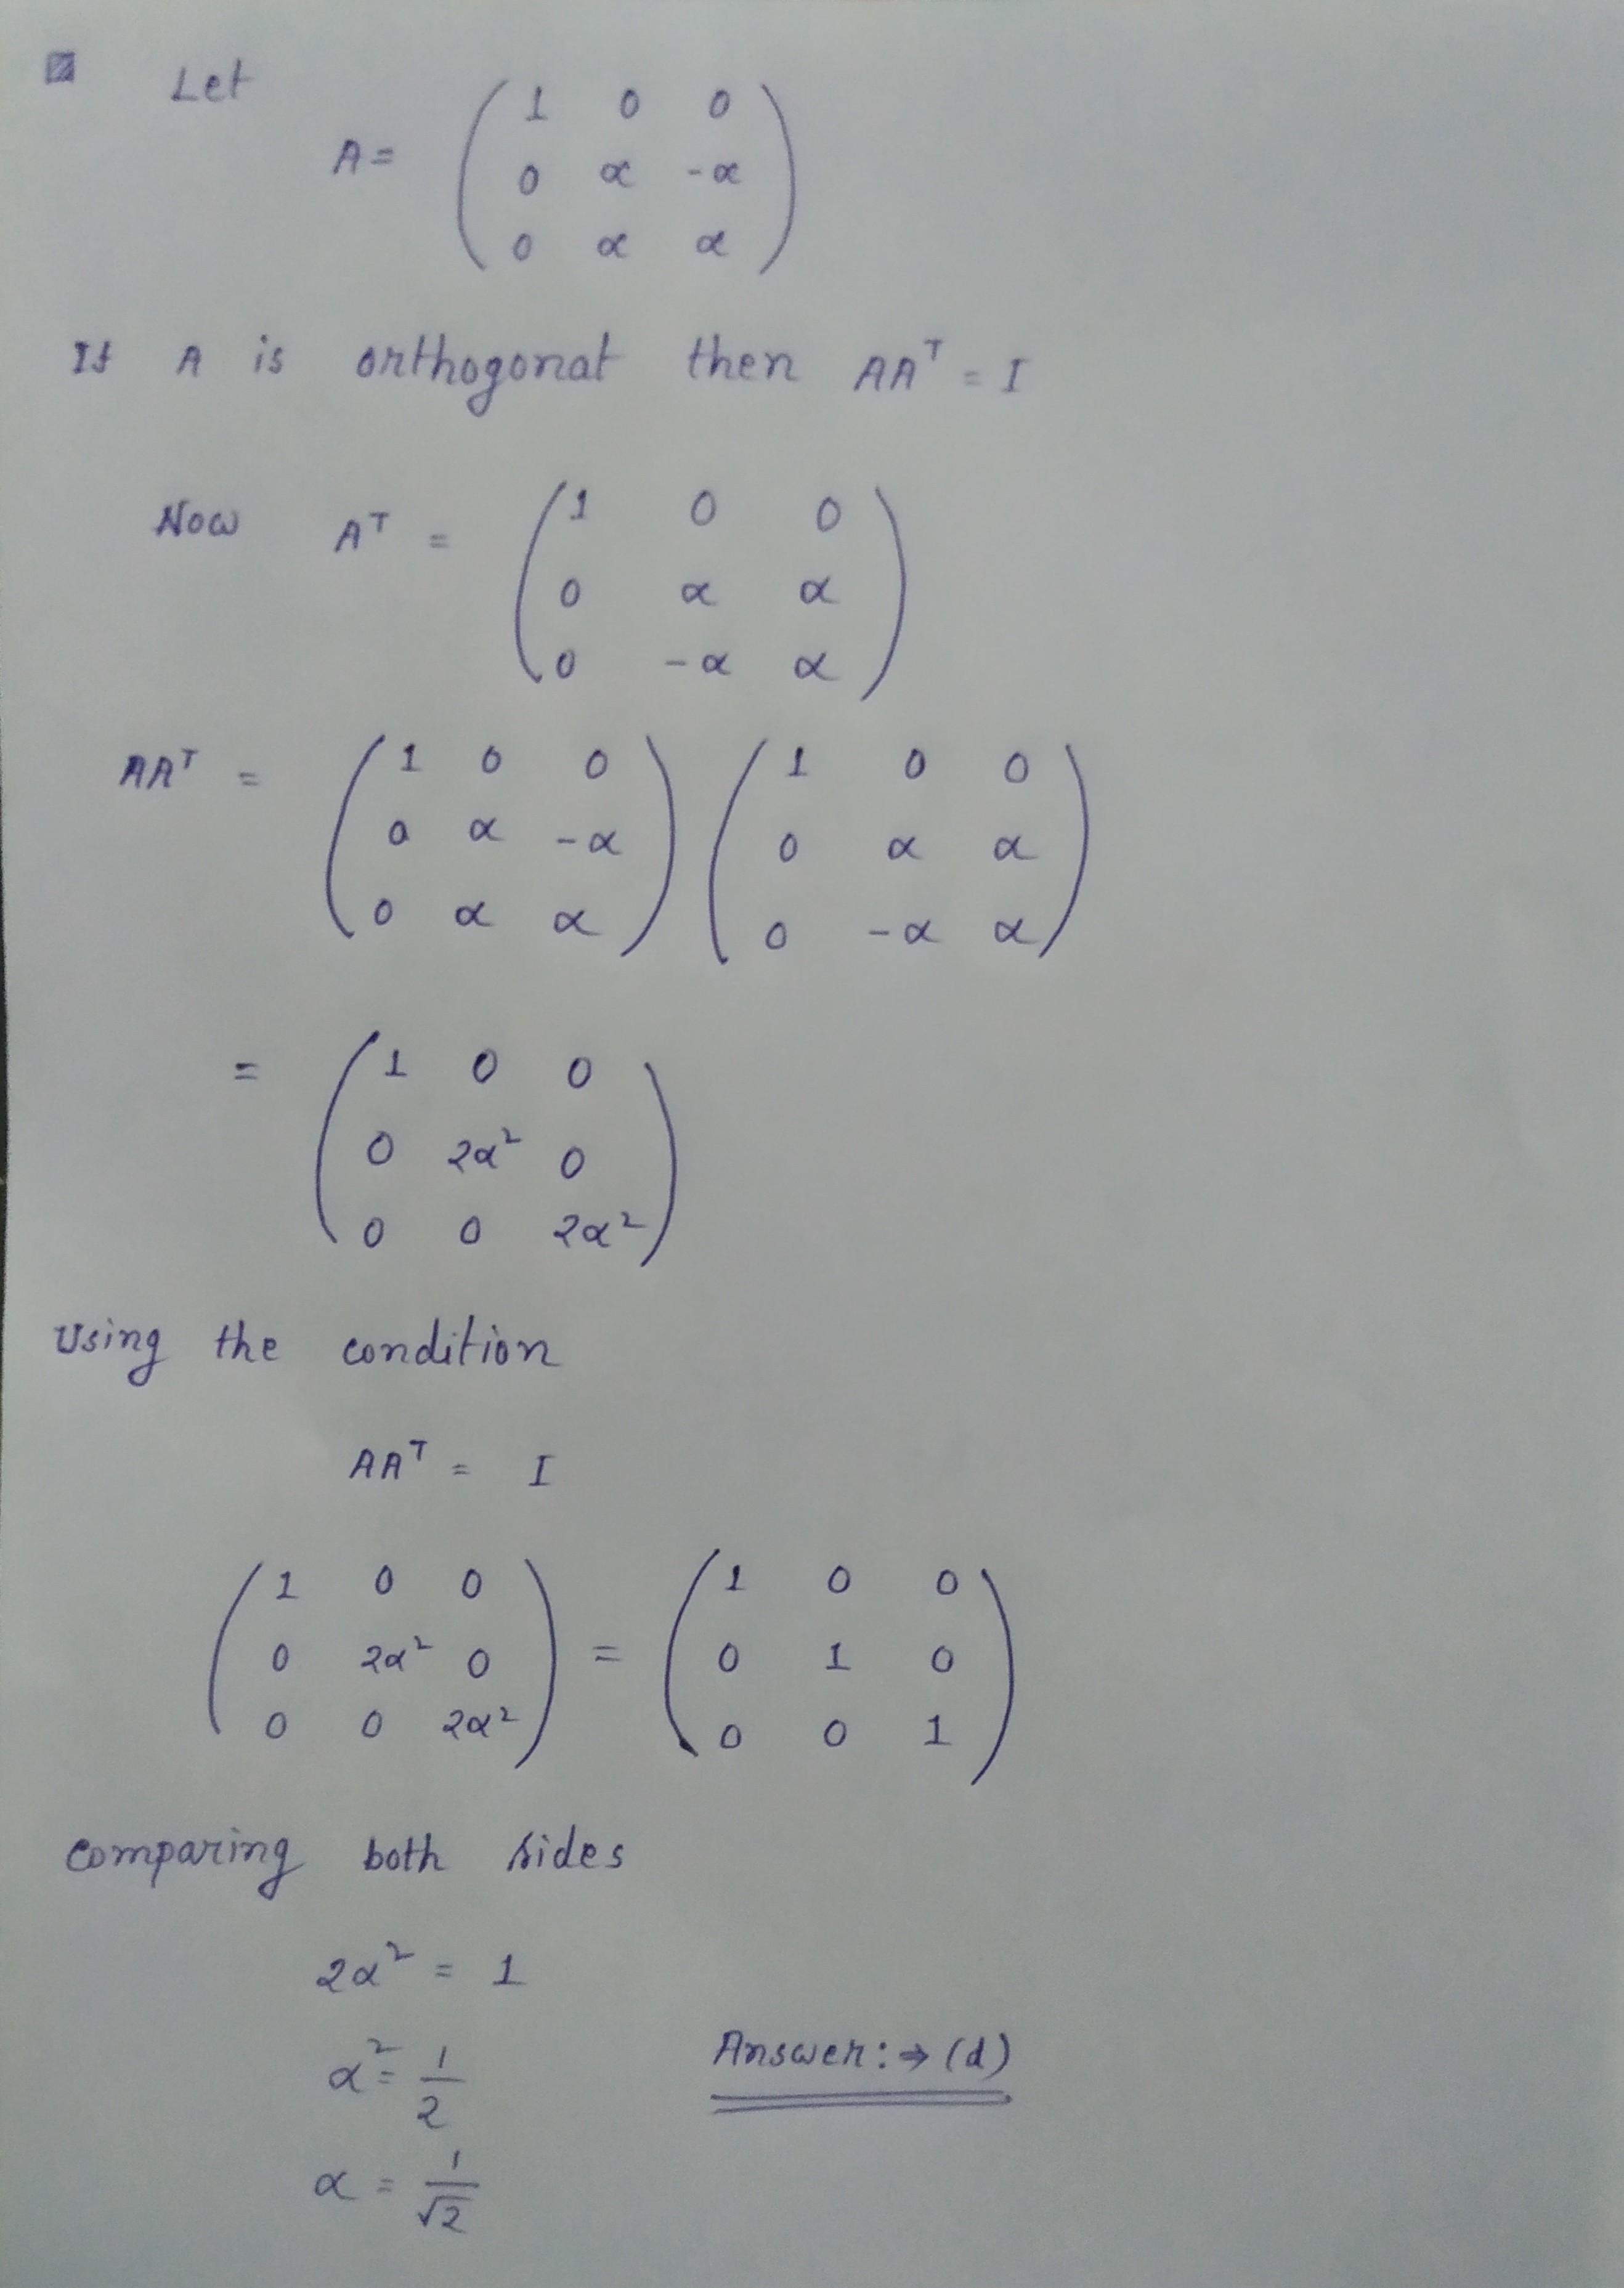 Let
A = ( 1 0 0
0 α -α
0 α α )
If A is orthogonal then AAᵀ = I
Now Aᵀ = ( 1 0 0
0 α α
0 -α α )
AAᵀ = ( 1 0 0 ) ( 1 0 0 )
0 α -α 0 α α
0 α α 0 -α α
= ( 1 0 0
0 2α² 0
0 0 2α² )
Using the condition
AAᵀ = I
( 1 0 0 ) = ( 1 0 0 )
0 2α² 0 0 1 0
0 0 2α² 0 0 1
comparing both sides
2α² = 1
α² = 1/2
α = 1/√2
Answer: → (d)